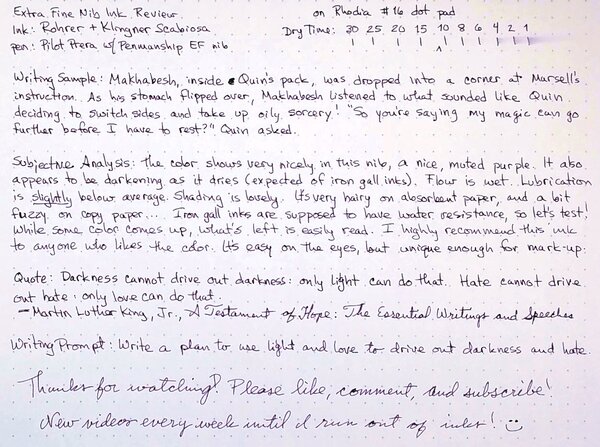 Extra Fine Nib Ink Review on Rhodia #16 dot pad
Ink: Rohrer + Klingner Scabiosa Dry Time: 30 25 20 15 10 8 6 4 2 1
pen: Pilot Prera w/ Penmanship EF nib
Writing Sample: Makhabesh, inside Quin's pack, was dropped into a corner at Marsell's
instruction. As his stomach flipped over, Makhabesh listened to what sounded like Quin
deciding to switch sides and take up oily sorcery! "So you're saying my magic can go
further before I have to rest?" Quin asked.
Subjective Analysis: The color shows very nicely in this nib, a nice, muted purple. It also
appears to be darkening as it dries (expected of iron gall inks). Flow is wet. Lubrication
is slightly below average. Shading is lovely. It's very hairy on absorbent paper, and a bit
fuzzy on copy paper... Iron gall inks are supposed to have water resistance, so let's test!
While some color comes up, what's left is easily read. I highly recommend this ink
to anyone who likes the color. It's easy on the eyes, but unique enough for mark-up.
Quote: Darkness cannot drive out darkness: only light can do that. Hate cannot drive
out hate: only love can do that.
—Martin Luther King, Jr., A Testament of Hope: The Essential Writings and Speeches
Writing Prompt: Write a plan to use light and love to drive out darkness and hate.
Thanks for watching! Please like, comment, and subscribe!
New videos every week until I run out of inks!